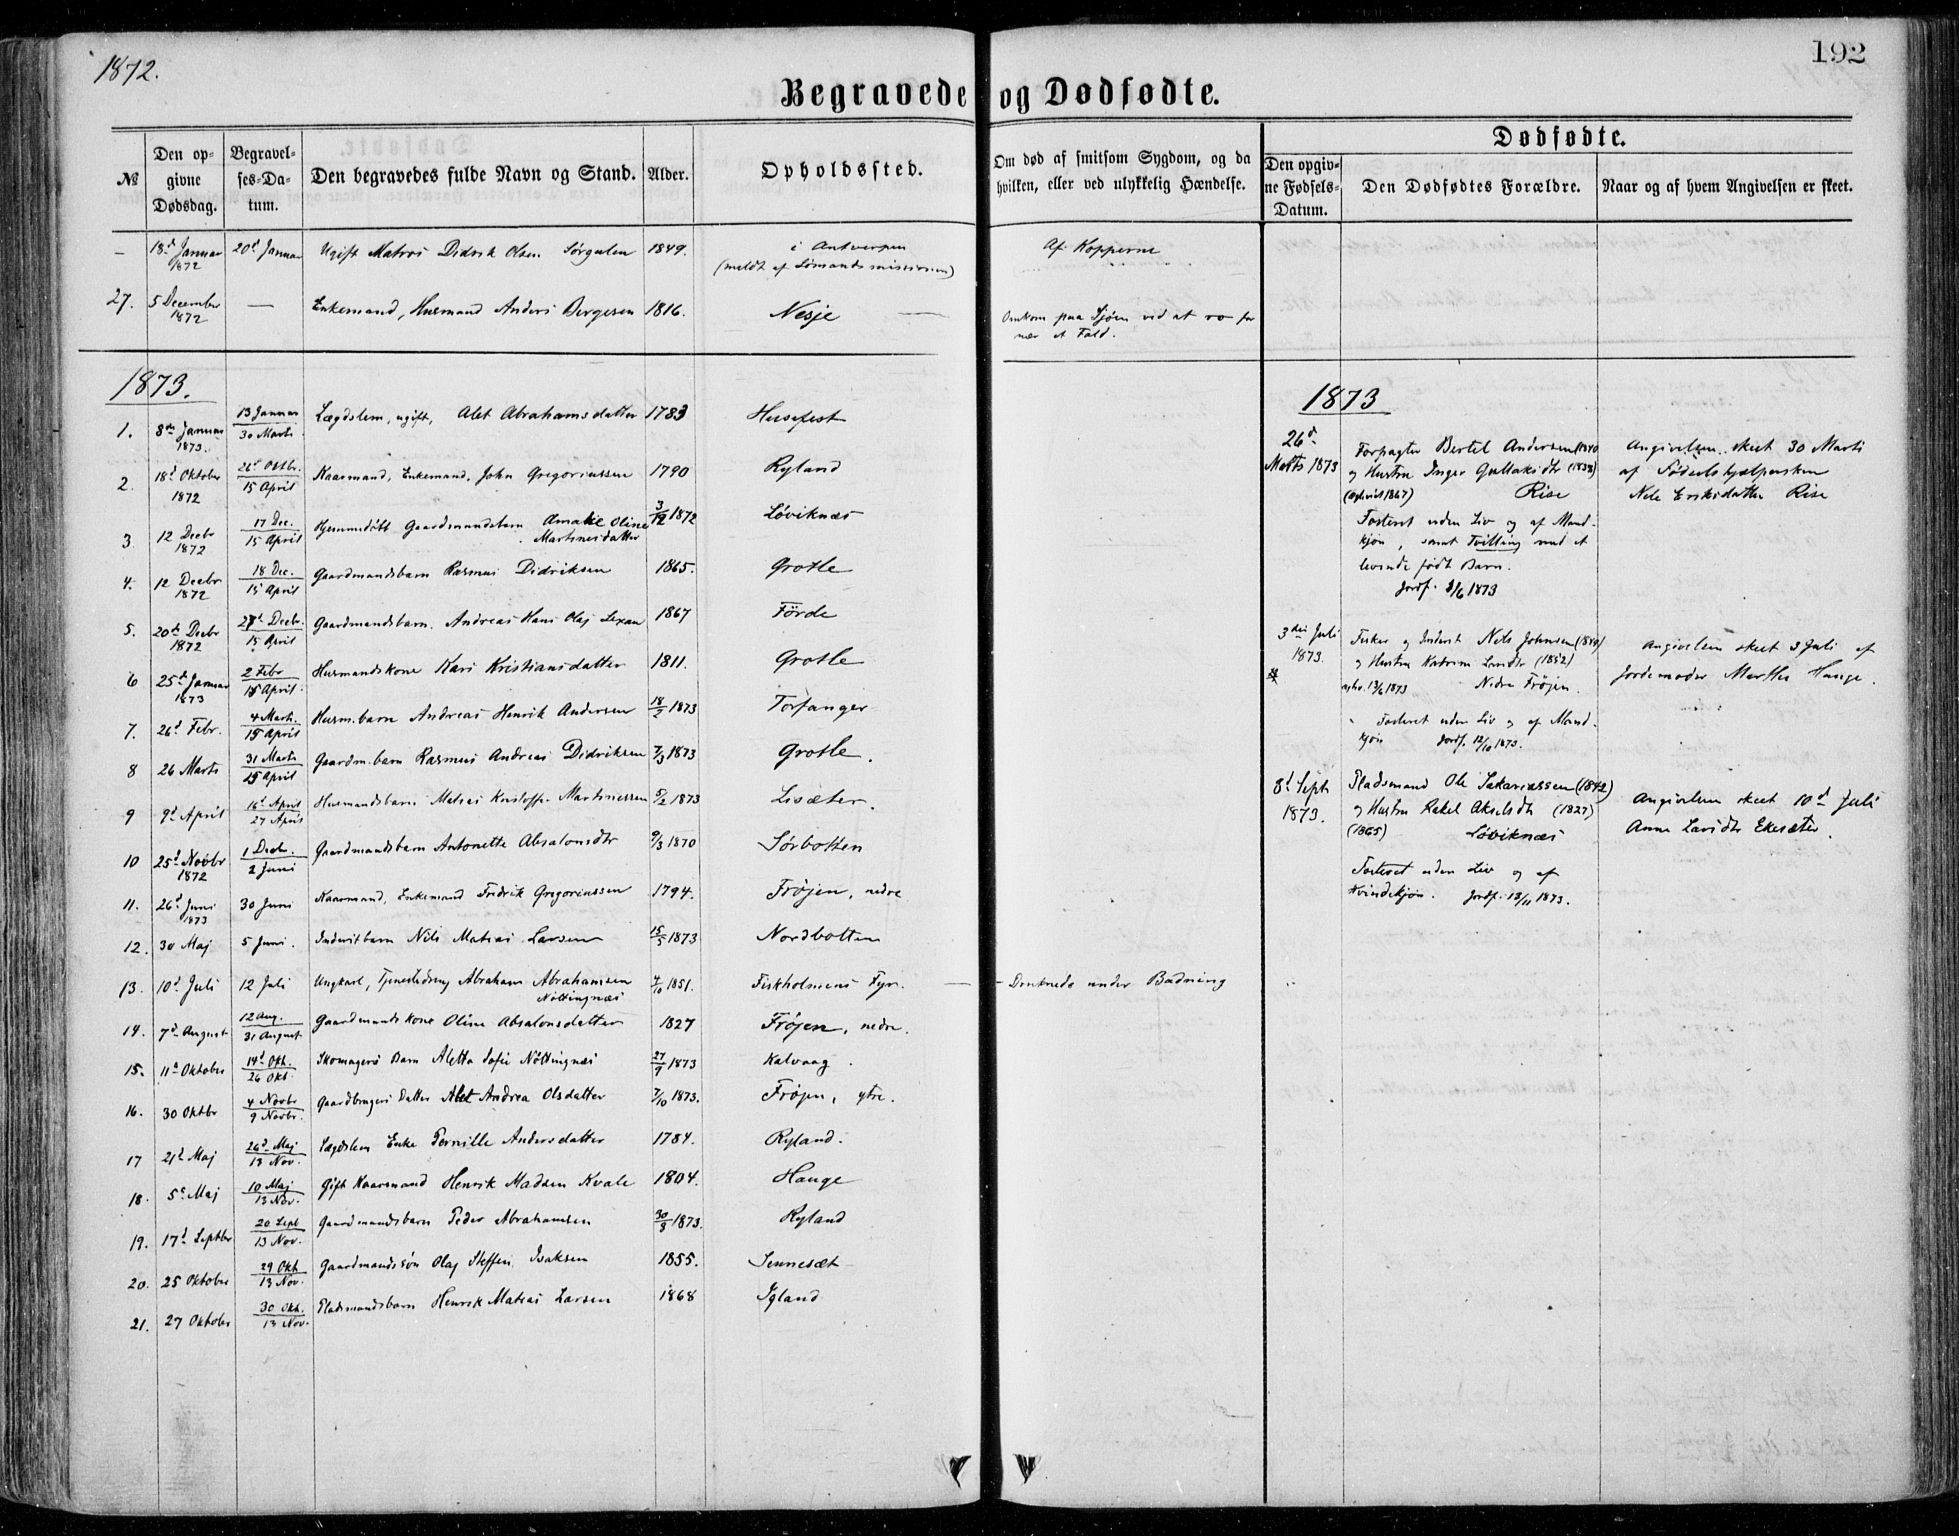 1872.
192
Begravede og Dødfødte.
№
Den opgivne Dødsdag.
Begravelses-Datum.
Den begravedes fulde Navn og Stand.
Alder.
Opholdssted.
Om død af smitsom Sygdom, og da hvilken, eller ved ulykkelig Hændelse.
Dødfødte.
Den opgivne Fødsels-Datum.
Den Dødfødtes Forældre.
Naar og af hvem Angivelsen er skeet.
— 18d Januar 1872 20d Januar Ugift Matros Didrik Olsen Sørgulen 1849. i Antverpen (meldt af Sømandsmissionen) Af Kopperne
27. 5 December 1872 — Enkemand, Husmand Anders Bergesen 1816. Nesje — Omkom paa Sjøen ved at ro for nær et Fald.
1873.
1. 8de Januar 1873. 13 Januar 30 Marts Lægdslem, ugift, Alet Abrahamsdatter 1783 Husefest
2. 18d Oktober 1872 26d Oktbr. 15 April Kaarmand, Enkemand, John Gregoriussen 1790 Ryland
3. 12 Decbr 1872 17 Dec. 15 April Hjemmedøbt Gaardmandsbarn Amalie Oline Martinusdatter 3/12 1872 Løviknæs
4. 12 Decbr 1872 18 Dec. 15 April Gaardmandsbarn Rasmus Didriksen 1865. Grotle
5. 20de Decbr 1872 27d Decbr. 15 April Gaardmandsbarn Andreas Hans Olaj 1867 Førde
6 25d Januar 1873 2 Febr 15 April Husmandskone Kari Kristiansdatter 1811. Grotle
7. 26d Febr. 4 Marts 15 April Husm.barn Andreas Henrik Andersen 18/2 1873 Torfanger
8 26 Marts 31 Marts 15 April Gaardm.barn Rasmus Andreas Didriksen 7/3 1873 Grotle.
9 9d April 16d April 27 April Husmandsbarn Matias Kristoffer Martinussen 5/2 1873 Lisæter.
10 25d Novbr 1872 1 Decbr. 2 Juni Gaardmandsbarn Antonette Absalonsdtr 9/3 1870 Sørbotten
11. 26d Juni 1873 30 Juni Kaarmand, Enkemand Fredrik Gregoriussen 1794. Frøjen, nedre
12. 30 Maj 5 Juni. Inderstbarn Nils Matias Larsen 15/5 1873 Nordbotten
13. 10d Juli 12 Juli Ungkarl, Tjenestedreng Abraham Abrahamsen Nøttingnæs 4/10 1851. Fiskholmens Fyr. — Druknede under Badning
14. 7d August 12 Aug. 31 August Gaardmandskone Oline Absalonsdatter 1827 Frøjen, nedre.
15. 11d Oktober 14d Okt. 26 Okt. Skomagers Barn Aletta Sofie Nøttingnæs 27/9 1873 Kalvaag.
16. 30 Oktbr 4 Novbr 9 Novbr. Gaardbrugers Datter Alet Andrea Olsdatter 7/10 1873. Frøjen, ytre.
17 21d Maj 26d Maj 13 Nov. Lægdslem Enke Pernille Andersdatter 1784. Ryland.
18. 5d Maj 10 Maj 13 Nov. Gift Kaarmand Henrik Madsen Kvale 1804. Hauge
19. 17d Septbr 20 Sept 13 Nov. Gaardmandsbarn Peder Abrahamsen 30/8 1873. Ryland
20. 25 Oktober 29 Okt 13 Nov. Gaardmandssøn Olaj Steffen Isaksen 1855. Sennesæt
21. 27 Oktober 30 Okt. 13 Nov. Pladsmandsbarn Henrik Matias Larsen 1868 Igland
1873
26d Marts 1873
Forpagter Bertel Andersen (1840
og Hustru Inger Gullaksdtr (1838)
(Ægteviet 1867) Rise
Fosteret uden Liv og af Mandkjøn, samt Tvilling med et levende født Barn.
Jordf. 3/6 1873
Angivelsen skeet 30 Marts
af Fødselshjælpersken
Nele Eriksdatter Rise
3die Juli 1873.
Fisker og Inderst Nels Johnsen
og Hustru Katrina Larsdtr (1852)
13/6 1873 Nedre Frøjen.
Fosteret uden Liv og af Mandkjøn Jordf. 12/10 1873.
Angivelsen skeet 3 Juli af
Jordemoder Marthe Hauge.
8d Sept 1873.
Pladsmand Ole Sakariassen (1842)
og Hustru Rakel Akselsdtr (1827)
(1865) Løviknæs
Fosteret uden Liv og af
Kvindekjøn. Jordf. 13/11 1873.
Angivelsen skeet 10d Juli
Anne Larsdtr Ekesæter.